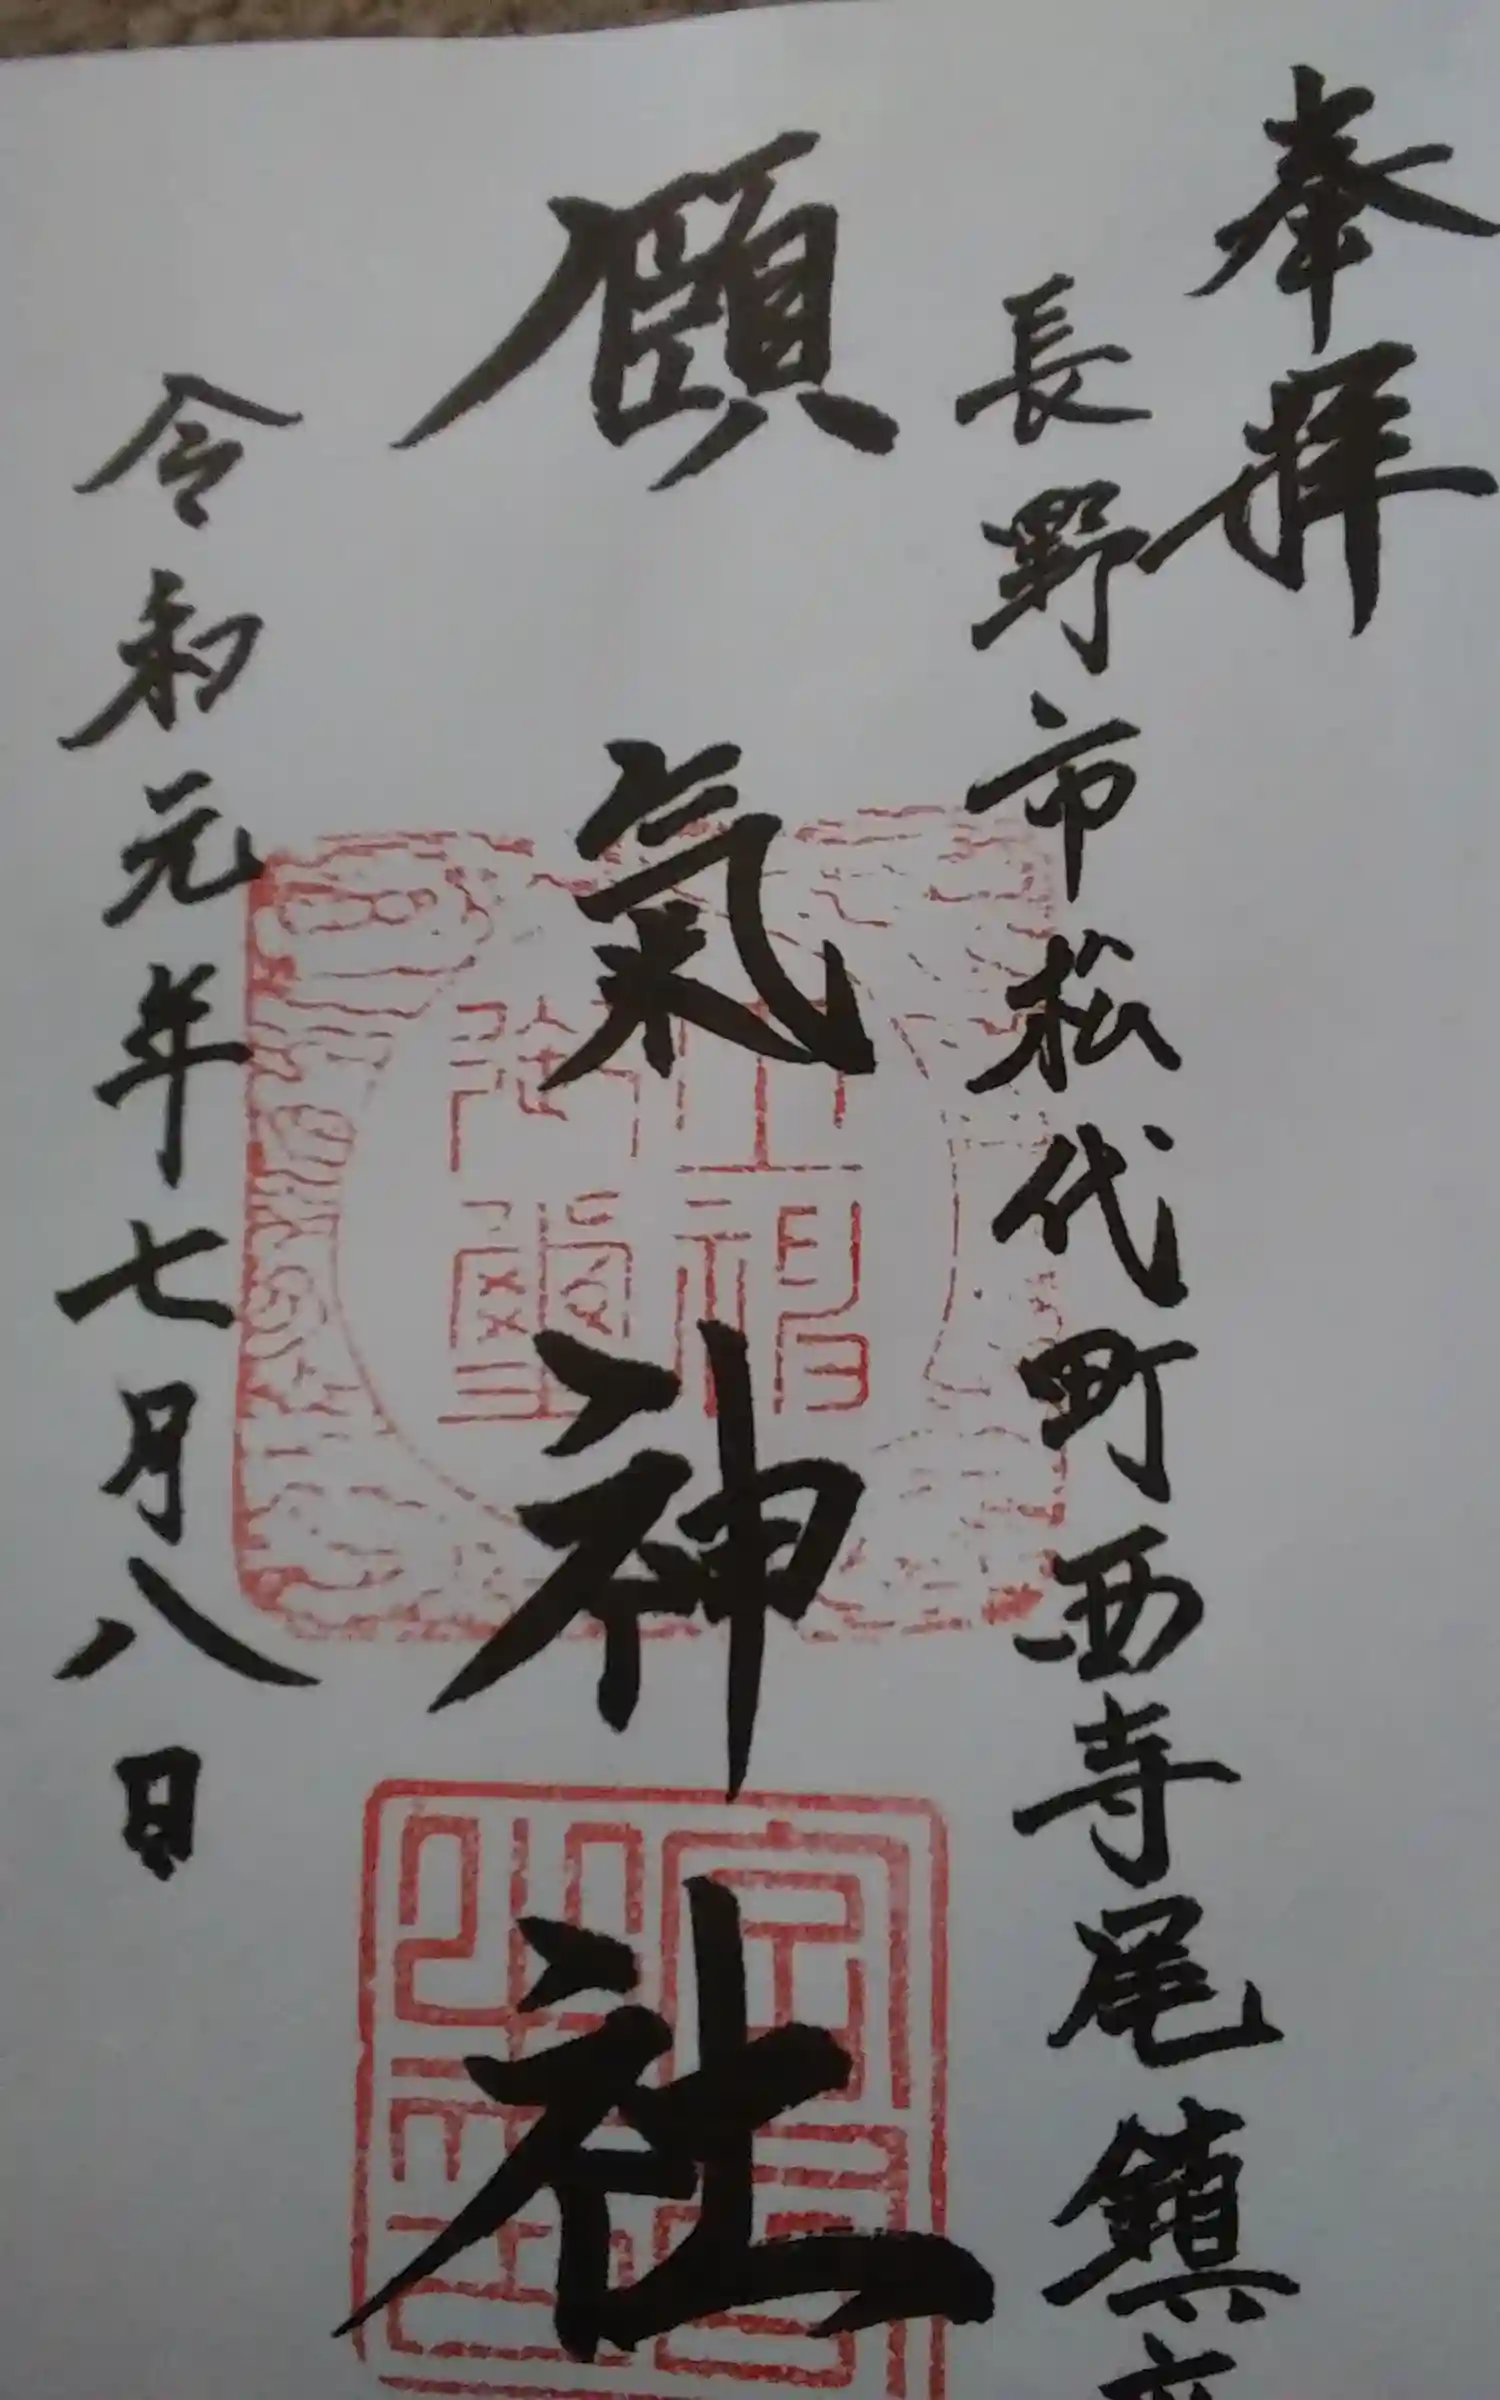 奉拝
長野市松代町西寺尾鎮
頤氣神社
令和元年七月八日